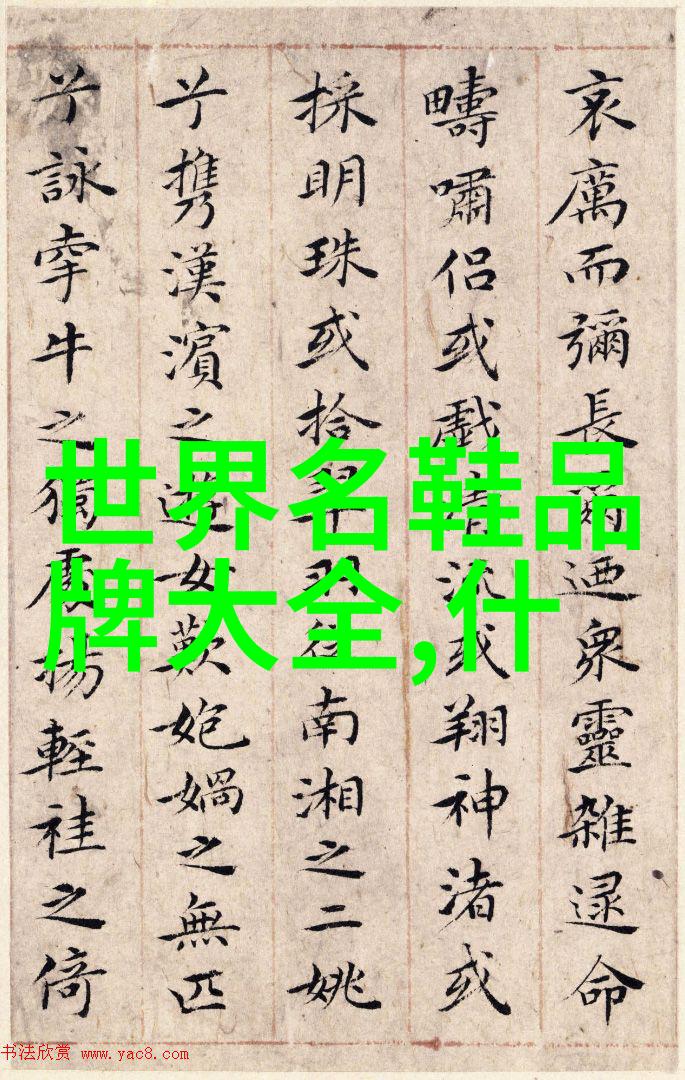 哀厲而彌長爾迺衆靈雜遝命
疇嘯侶或戲清流或翔神渚或
採明珠或拾翠羽從南湘之二姚
兮携漢濱之遊女歎㚿媧之無匹
兮詠牽牛之獨處揚輕袿之倚
世界名鞋品
牌大全,什
书法欣赏 www.yac8.com